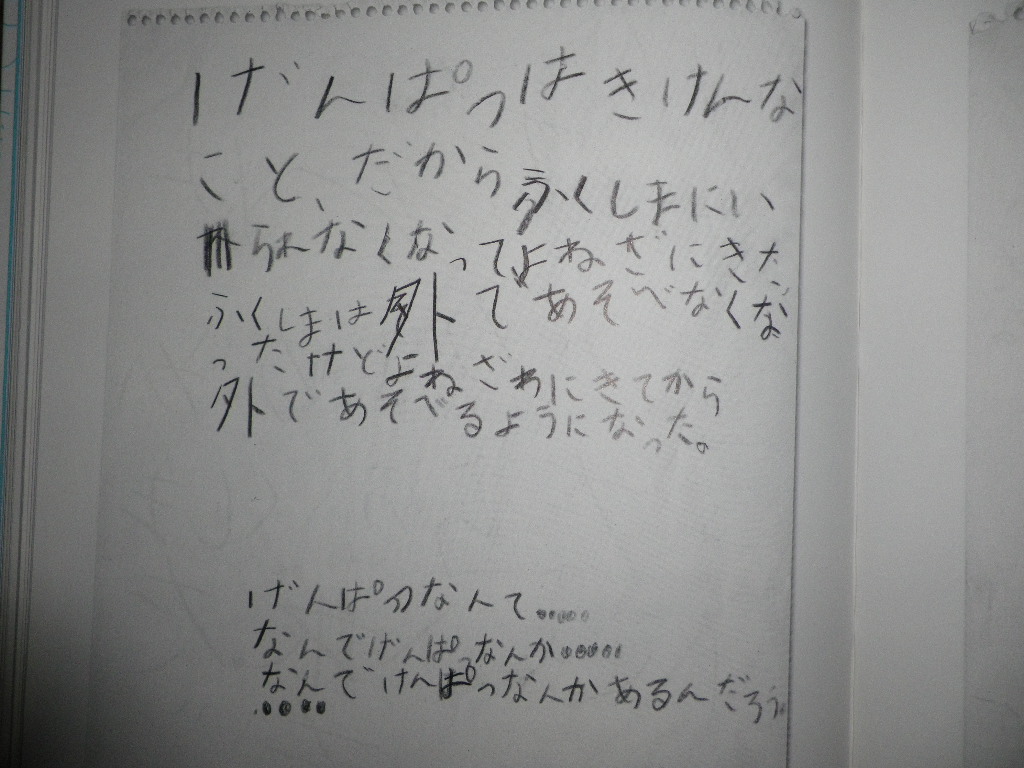 げんぱつはきけんな
こと、だからふくしまにい
られなくなって、よねざにきた
ふくしまは外であそべなくな
ったけどよねざわにきてから
外であそべるようになった。
げんぱつなんて.....
なんでげんぱなんか......
なんでけんぱつなんかあるんだろう
.....